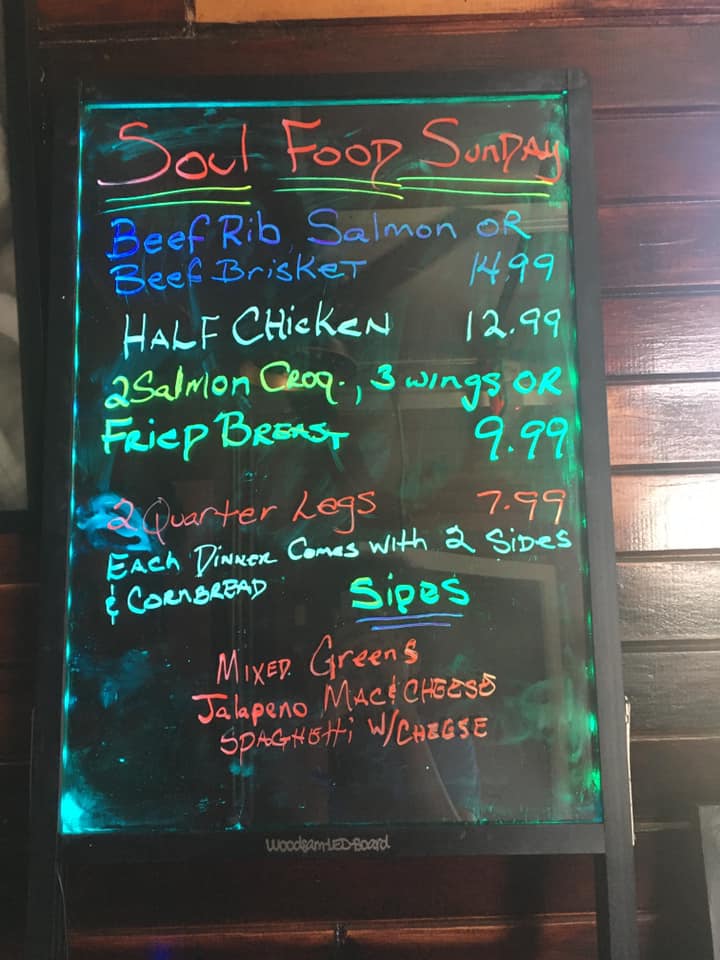 Soul Food Sunday
Beef Rib, Salmon OR
Beef Brisket 14.99
HALF CHicKEN 12.99
2 Salmon Croq., 3 wings OR
FRiED BREAST 9.99
2 Quarter Legs 7.99
EACH DINNER Comes WITH 2 SiDES
& CORNBREAD SiDES
MIXED Greens
Jalapeno MAC & CHEESE
SPAGHEtti W/CHEESE
Woodsam-LED-Board